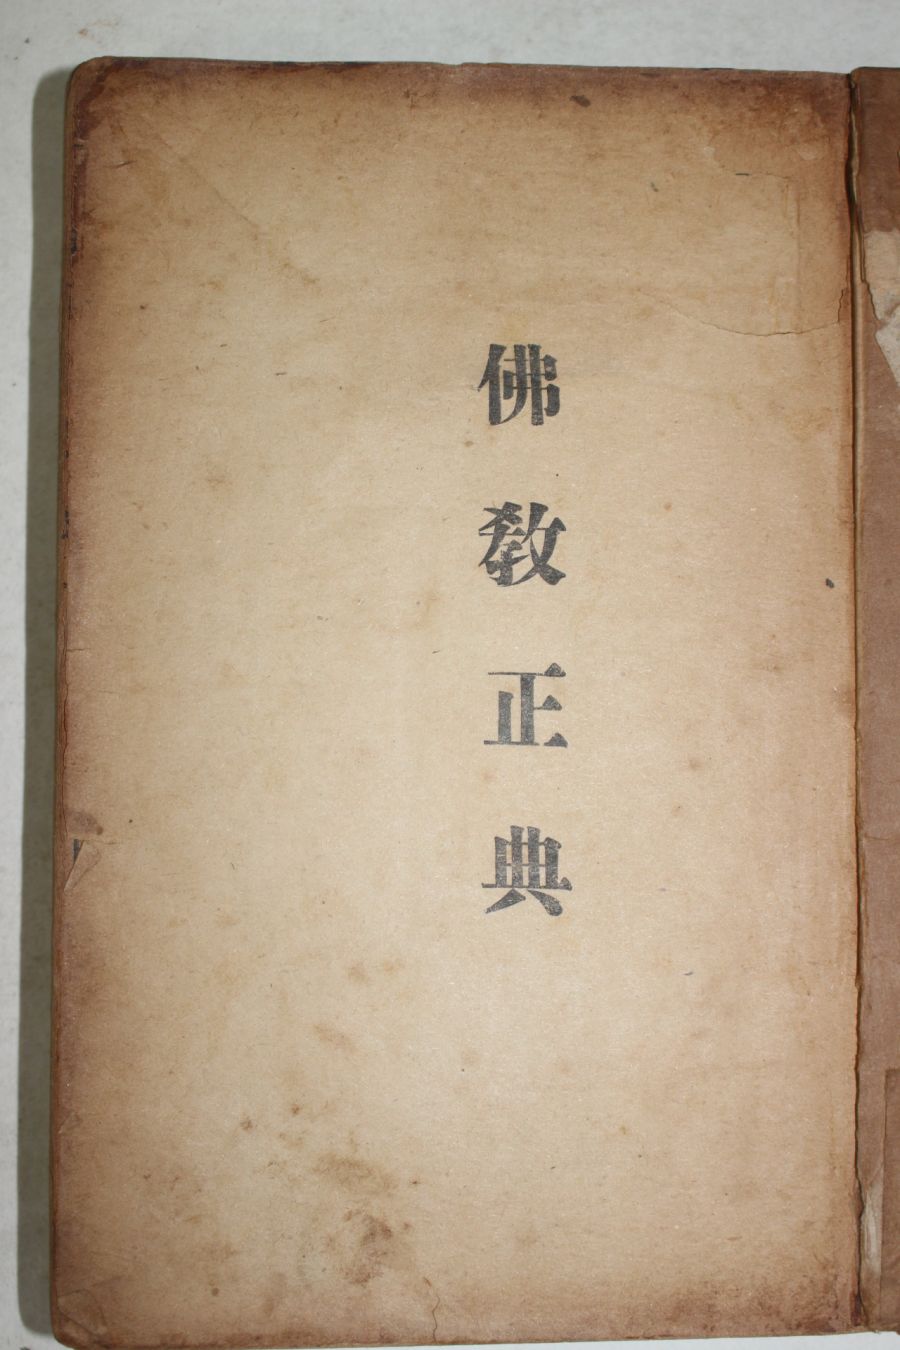 佛敎正典